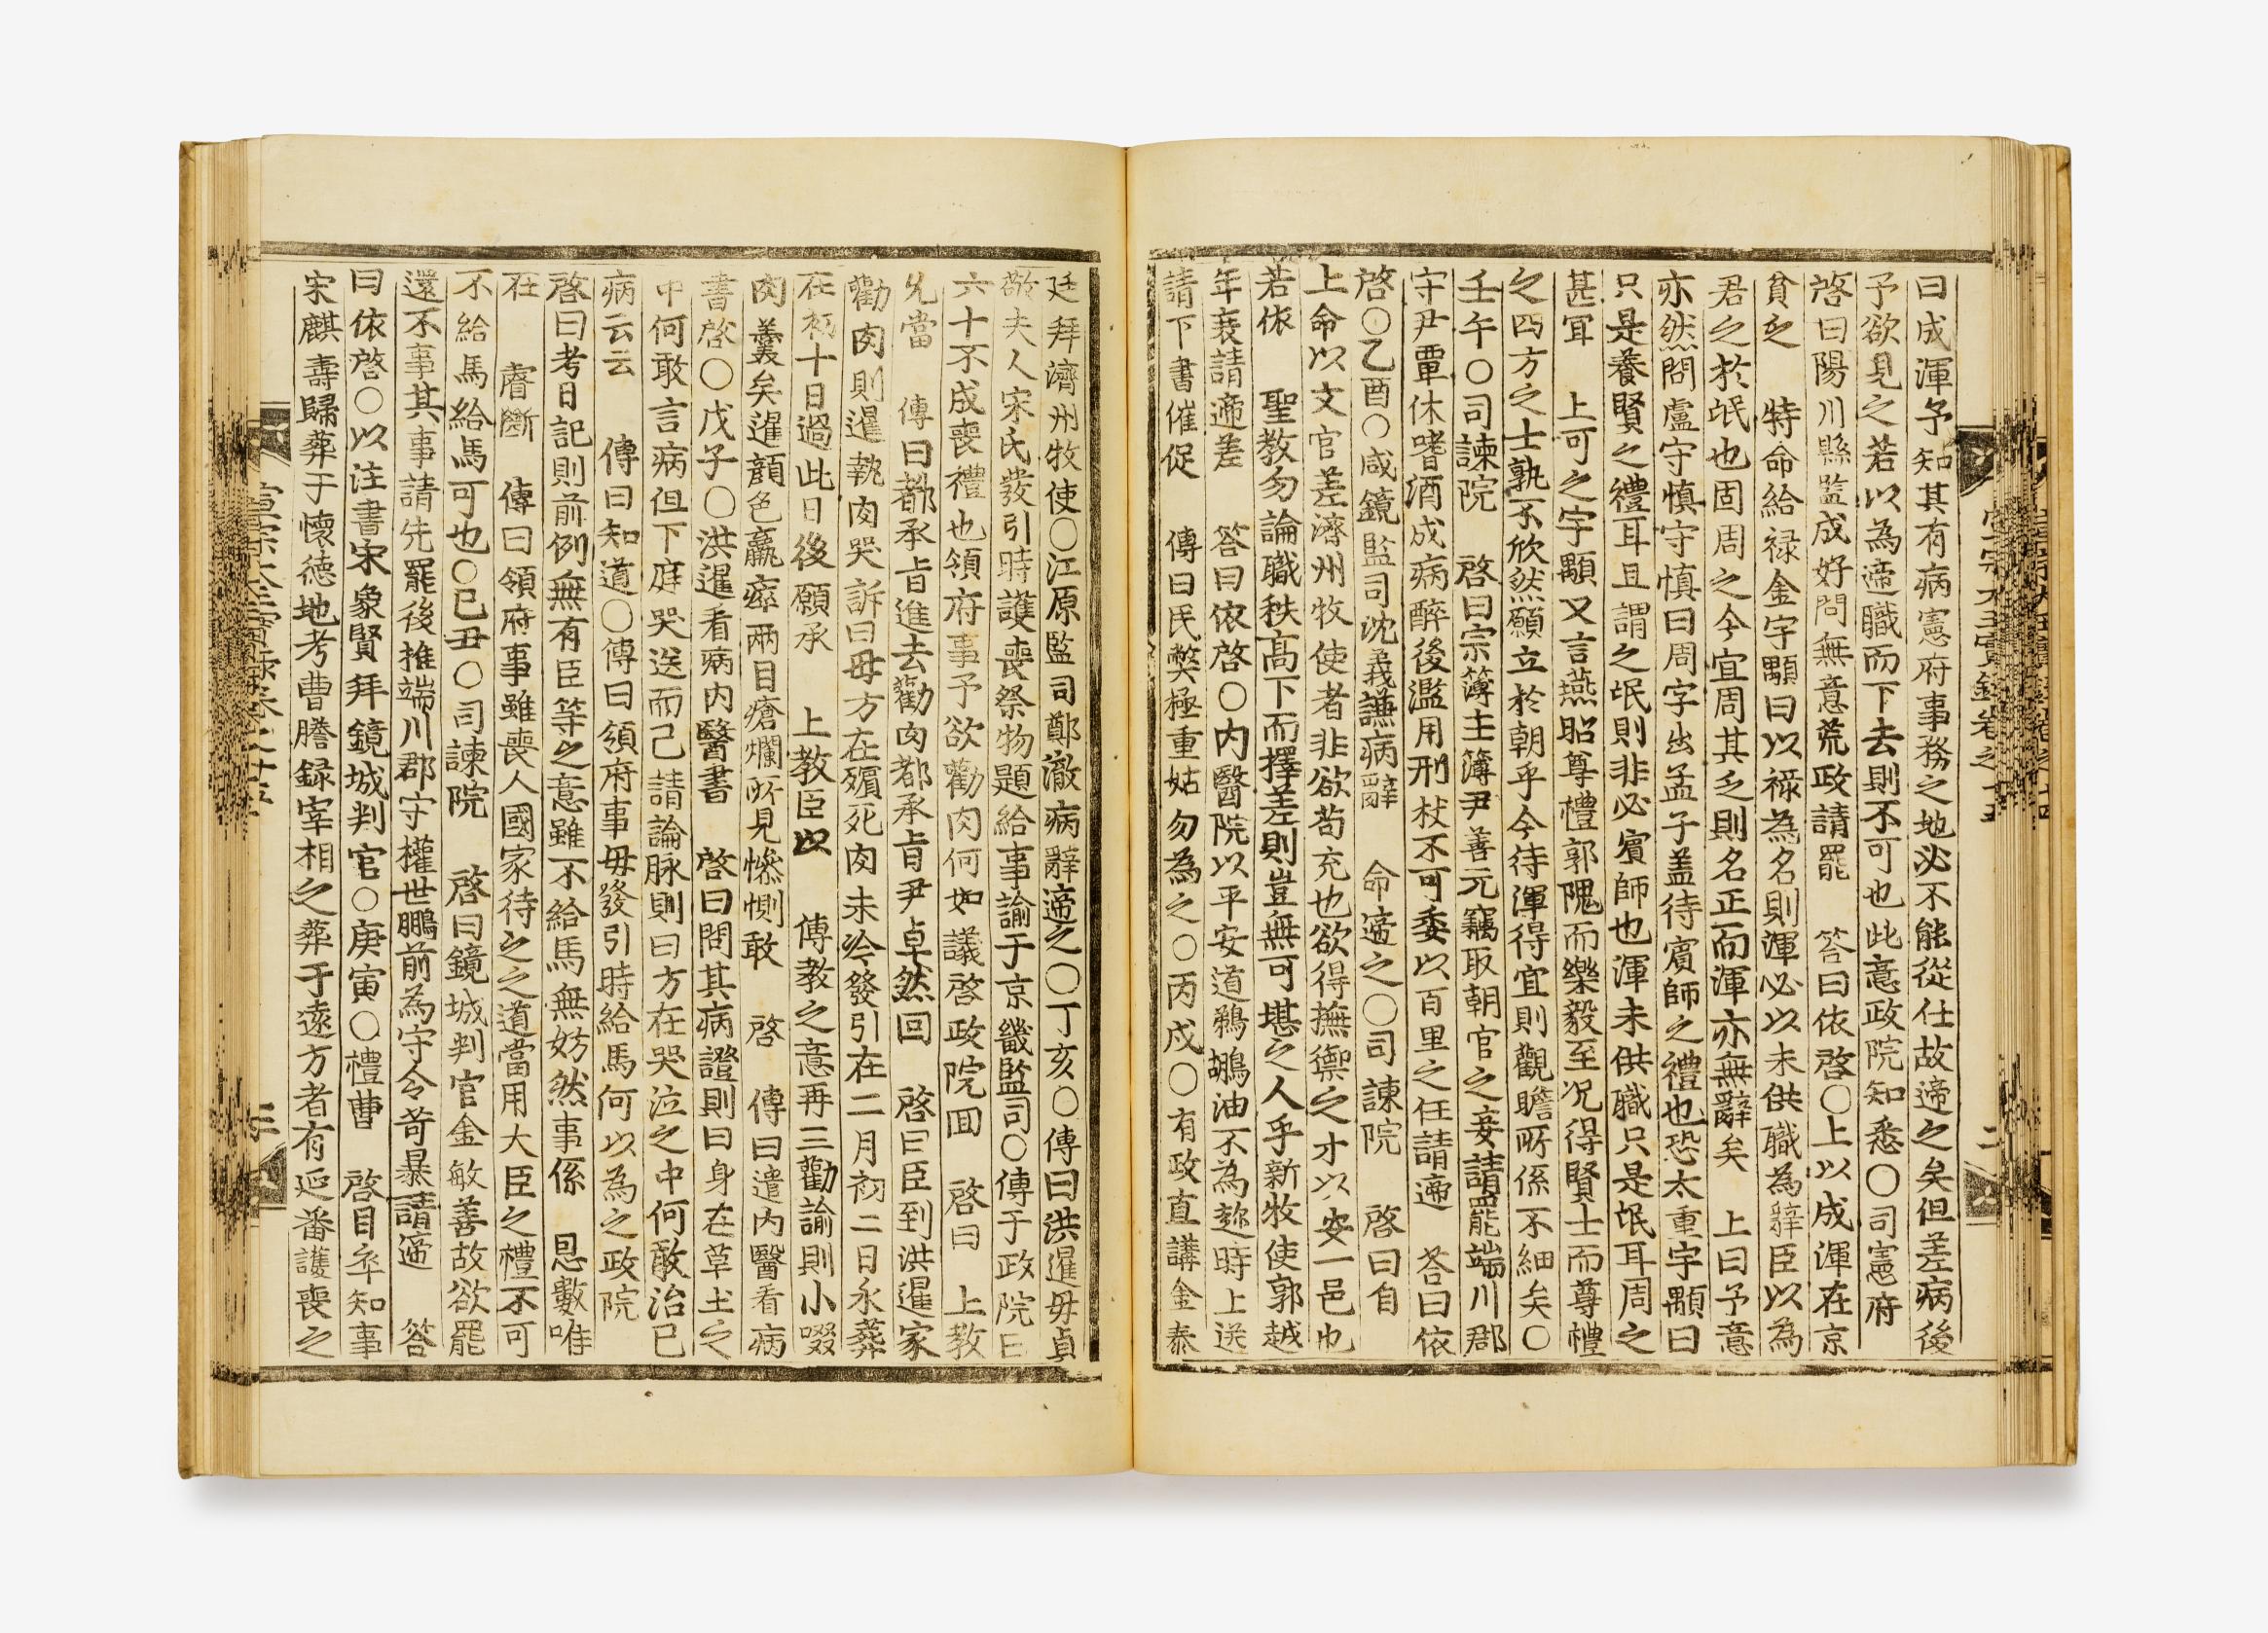 曰成渾予知其有病憲府事務之地必不能從仕故遆之矣但差病後
予欲見之若以為遆職而下去則不可也此意政院知悉○司憲府
啓曰陽川縣監成好問無意荒政請罷 答曰依啓○上以成渾在京
貧乏 特命給祿金宇顒曰以祿為名則渾必以未供職為辭臣以為
君之於氓也固周之今宜周其乏則名正而渾亦無辭矣 上曰予意
亦然問盧守愼守愼曰周字出孟子盖待賓師之禮也恐太重宇顒曰
只是養賢之禮耳且謂之氓則非必賓師也渾未供職只是氓耳周之
甚冝 上可之宇顒又言燕昭尊禮郭隗而樂毅至况得賢士而尊禮
之四方之士孰不欣然願立於朝乎今待渾得宜則觀瞻所係不細矣○
壬午○司諫院 啓曰宗簿主簿尹善元竊取朝官之妾請罷端川郡
守尹覃休嗜酒成病醉後濫用刑杖不可委以百里之任請遆 答曰依
啓○乙酉○咸鏡監司沈義謙病辭 命遆之○司諫院 啓曰自
上命以文官差濟州牧使者非欲苟充也欲得撫禦之才以安一邑也
若依 聖教勿論職秩高下而擇差則豈無可堪之人乎新牧使郭越
年衰請遆差 答曰依啓○内醫院以平安道鵜鶘油不為趂時上送
請下書催促 傳曰民弊極重姑勿為之○丙戌○有政直講金泰
廷拜濟州牧使○江原監司鄭澈病辭遆之○丁亥○傳曰洪暹母貞
敬夫人宋氏發引時護喪祭物題給事諭于京畿監司○傳于政院曰
六十不成喪禮也領府事予欲勸肉何如議啓政院回 啓曰 上教
允當 傳曰都承旨進去勸肉都承旨尹卓然回 啓曰臣到洪暹家
勸肉則暹執肉哭訴曰母方在殯死肉未吟發引在二月初二日永葬
在初十日過此日後願承 上教臣以 傳教之意再三勸諭則小啜
肉羹矣暹顔色羸瘁兩目瘡爛所見慘惻敢 啓 傳曰遣内醫看病
書啓○戊子○洪暹看病内醫書 啓曰問其病證則曰身在草土之
中何敢言病但下庭哭送而已請論脉則曰方在哭泣之中何敢治已
病云云 傳曰知道○傳曰領府事母發引時給馬何以為之政院
啓曰考日記則前例無有臣等之意雖不給馬無妨然事係 恩數唯
在 睿斷 傳曰領府事雖喪人國家待之之道當用大臣之禮不可
不給馬給馬可也○己丑○司諫院 啓曰鏡城判官金敏善故欲罷
還不事其事請先罷後推端川郡守權世鵬前為守令苛暴請遆 答
曰依啓○以注書宋象賢拜鏡城判官○庚寅○禮曹 啓目卒知事
宋麒壽歸葬于懷德地考曹謄録宰相之葬于遠方者有延蕃護喪之